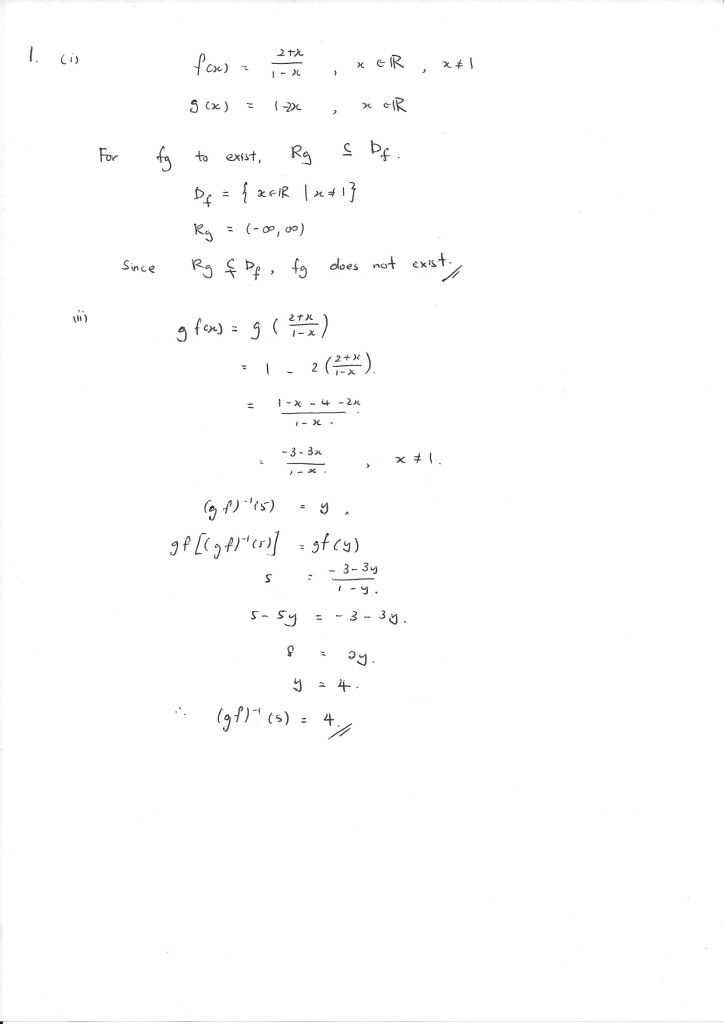 1. (i) f(x) = (2+x)/(1-x) , x ∈ ℝ , x ≠ 1
g(x) = 1-2x , x ∈ ℝ
For fg to exist, Rg ⊆ Df.
Df = { x∈ℝ | x≠1 }
Rg = (-∞, ∞)
Since Rg ⊈ Df, fg does not exist.
(ii) gf(x) = g((2+x)/(1-x))
= 1 - 2((2+x)/(1-x)).
= (1-x-4-2x)/(1-x).
= (-3-3x)/(1-x). , x ≠ 1.
(gf)⁻¹(5) = y.
gf[(gf)⁻¹(5)] = gf(y)
5 = (-3-3y)/(1-y).
5-5y = -3-3y.
8 = 2y.
y = 4.
∴ (gf)⁻¹(5) = 4